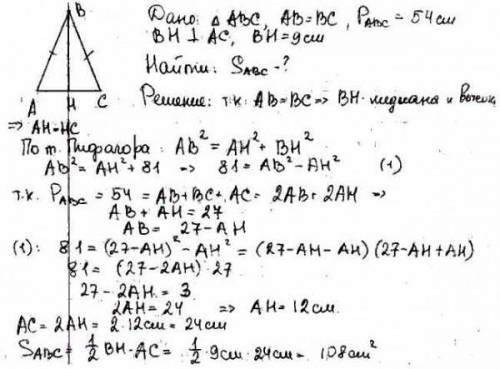 B
A H C
Дано: Δ ABC, AB=BC, P_ABC = 54 см
BH ⊥ AC, BH = 9 см
Найти: S_ABC - ?
Решение: т.к. AB=BC => BH - медиана и высота,
=> AH=HC
По т. Пифагора: AB² = AH² + BH²
AB² = AH² + 81 => 81 = AB² - AH² (1)
т.к. P_ABC = 54 = AB + BC + AC = 2AB + 2AH =>
AB + AH = 27
AB = 27 - AH
(1): 81 = (27-AH)² - AH² = (27-AH-AH)(27-AH+AH)
81 = (27-2AH) · 27
27 - 2AH = 3
2AH = 24 => AH = 12 см.
AC = 2AH = 2·12 см = 24 см
S_ABC = 1/2 BH·AC = 1/2 · 9 см · 24 см = 108 см²